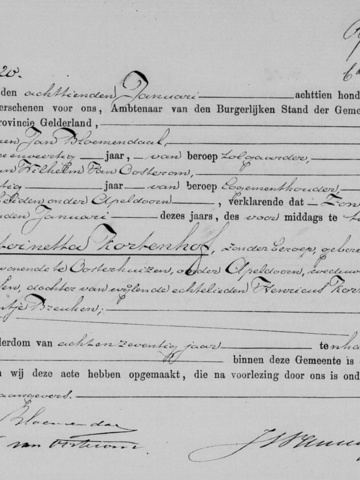 20.
den achttienden Januari achttien hond
erschenen voor ons, Ambtenaar van den Burgerlijken Stand der Geme
rovincie Gelderland,
en Jan Bloemendaal,
jaar, van beroep tolgaarder,
an Wilhelm van Oosterom,
tig jaar, van beroep Logementhouder,
onder Apeldoorn, verklarende dat
nden Januari dezes jaars, des voor middags te
Kortenhof, zonder beroep, gebore
wonende te Oosterhuizen, onder Apeldoorn, weduw
dochter van wijlende echtelieden Henricus Kor
tje Breuken,
derdom van achtenzeventig jaar
binnen deze Gemeente is
n wij deze acte hebben opgemaakt, die na voorlezing door ons is ond
aangevers.
Bloemendaa
van Oosterom